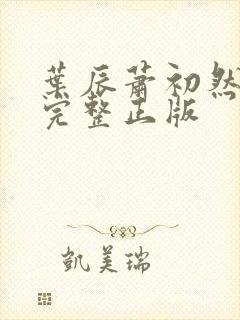 葉辰蕭初然
完整正版
凱美瑞